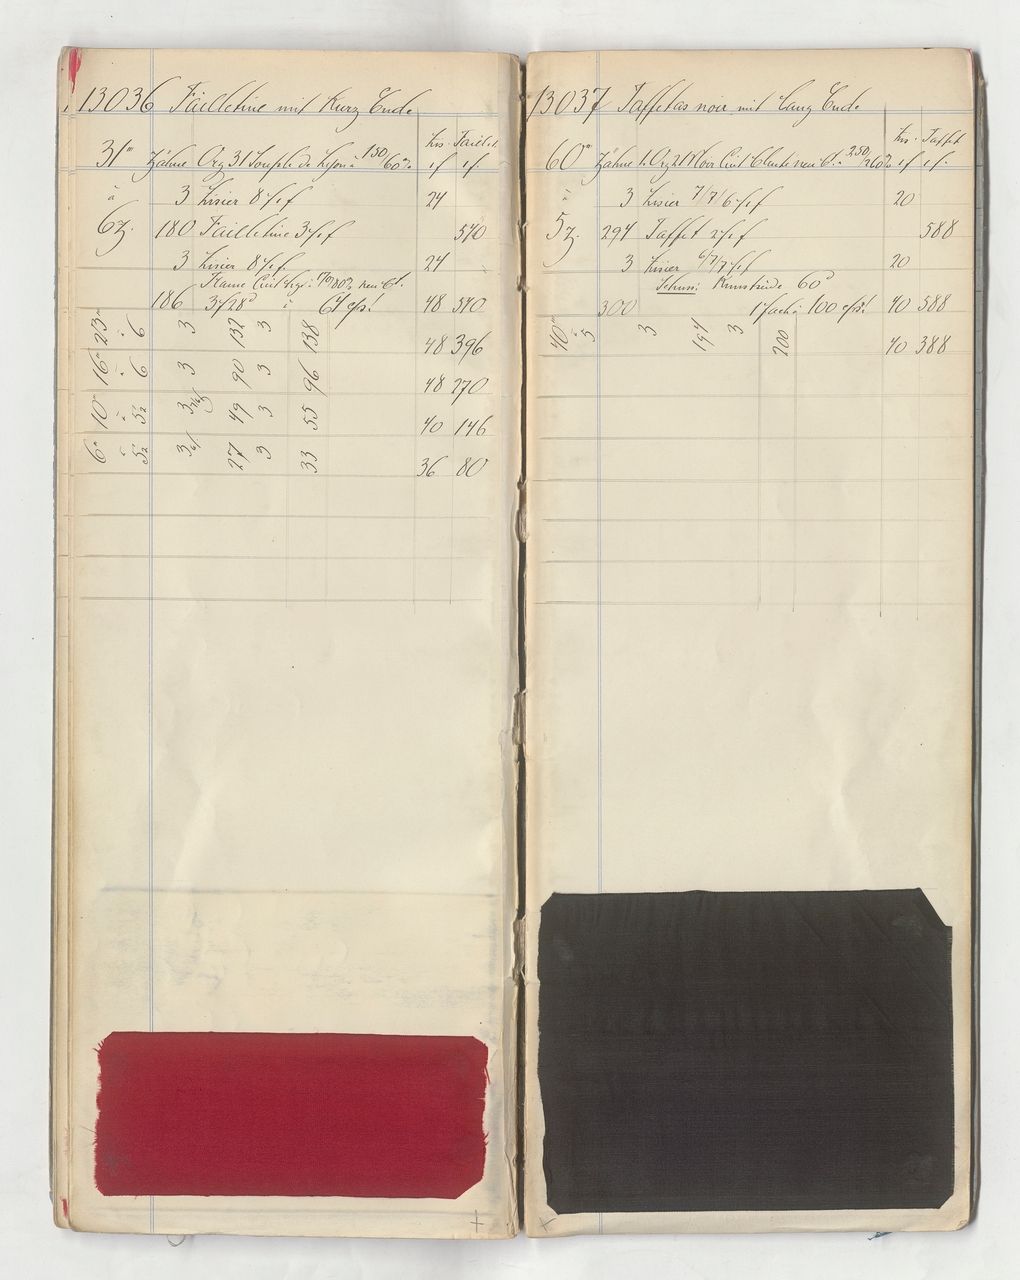 13036 Failletine mit Kurz Ende
Lis. Faillet.
31''' Zähne Org 31 Souple de Lyon à 130/60%
à 3 Lisier 8/f 24
6 Z. 180 Failletine 3/f 540
3 Lisier 8/f 24
Trame Cuit
186 3/28 à 64 cps! 48 540
23''' à 6 3 132 3 138 48 396
16''' à 6 3 90 3 96 48 270
10''' à 5½ 3 49 3 55 40 146
6''' à 5½ 3 27 3 33 36 80
13037 Taffetas noir mit lang Ende
Lis. Taffet
60''' Zähne 1. Org 21 Noir Cuit 250/260%
3 Lisier 7/7/6/f 20
5 Z. 294 Taffet 2/f 588
3 Lisier 6/7/7/f 20
Schuss: Kunstseide 60
300 1fach à 100 cps! 40 588
40''' à 5 3 194 3 200 40 388